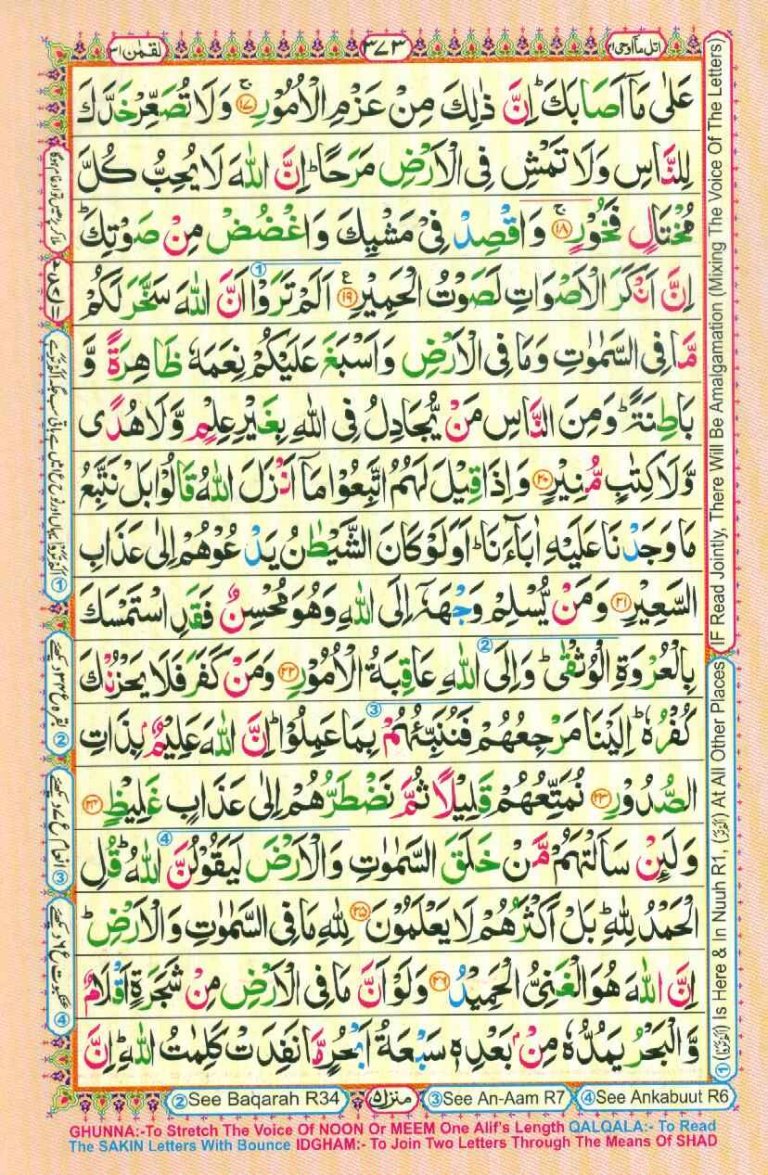 اتل ما اوحی ۲۱
۳۷۳
لقمٰن ۳۱
عَلٰى مَاۤ اَصَابَكَؕ اِنَّ ذٰلِكَ مِنْ عَزْمِ الْاُمُوْرِۚ ۱۷ وَلَا تُصَعِّرْ خَدَّكَ
لِلنَّاسِ وَلَا تَمْشِ فِى الْاَرْضِ مَرَحًاؕ اِنَّ اللّٰهَ لَا يُحِبُّ كُلَّ
مُخْتَالٍ فَخُوْرٍۚ ۱۸ وَاقْصِدْ فِىْ مَشْيِكَ وَاغْضُضْ مِنْ صَوْتِكَؕ
اِنَّ اَنْكَرَ الْاَصْوَاتِ لَصَوْتُ الْحَمِيْرِ ۱۹ ع اَلَمْ تَرَوْا اَنَّ اللّٰهَ سَخَّرَ لَكُمْ
مَّا فِى السَّمٰوٰتِ وَمَا فِى الْاَرْضِ وَاَسْبَغَ عَلَيْكُمْ نِعَمَهٗ ظَاهِرَةً وَّ
بَاطِنَةًؕ وَمِنَ النَّاسِ مَنْ يُّجَادِلُ فِى اللّٰهِ بِغَيْرِ عِلْمٍ وَّلَا هُدًى
وَّلَا كِتٰبٍ مُّنِيْرٍ ۲۰ وَاِذَا قِيْلَ لَهُمُ اتَّبِعُوْا مَاۤ اَنْزَلَ اللّٰهُ قَالُوْا بَلْ نَتَّبِعُ
مَا وَجَدْنَا عَلَيْهِ اٰبَآءَنَاؕ اَوَلَوْ كَانَ الشَّيْطٰنُ يَدْعُوْهُمْ اِلٰى عَذَابِ
السَّعِيْرِ ۲۱ وَمَنْ يُّسْلِمْ وَجْهَهٗۤ اِلَى اللّٰهِ وَهُوَ مُحْسِنٌ فَقَدِ اسْتَمْسَكَ
بِالْعُرْوَةِ الْوُثْقٰىؕ وَاِلَى اللّٰهِ عَاقِبَةُ الْاُمُوْرِ ۲۲ وَمَنْ كَفَرَ فَلَا يَحْزُنْكَ
كُفْرُهٗؕ اِلَيْنَا مَرْجِعُهُمْ فَنُنَبِّئُهُمْ بِمَا عَمِلُوْاؕ اِنَّ اللّٰهَ عَلِيْمٌۢ بِذَاتِ
الصُّدُوْرِ ۲۳ نُمَتِّعُهُمْ قَلِيْلًا ثُمَّ نَضْطَرُّهُمْ اِلٰى عَذَابٍ غَلِيْظٍ ۲۴
وَلَئِنْ سَاَلْتَهُمْ مَّنْ خَلَقَ السَّمٰوٰتِ وَالْاَرْضَ لَيَقُوْلُنَّ اللّٰهُؕ قُلِ
الْحَمْدُ لِلّٰهِؕ بَلْ اَكْثَرُهُمْ لَا يَعْلَمُوْنَ ۲۵ لِلّٰهِ مَا فِى السَّمٰوٰتِ وَالْاَرْضِؕ
اِنَّ اللّٰهَ هُوَ الْغَنِىُّ الْحَمِيْدُ ۲۶ وَلَوْ اَنَّ مَا فِى الْاَرْضِ مِنْ شَجَرَةٍ اَقْلَامٌ
وَّالْبَحْرُ يَمُدُّهٗ مِنْۢ بَعْدِهٖ سَبْعَةُ اَبْحُرٍ مَّا نَفِدَتْ كَلِمٰتُ اللّٰهِؕ اِنَّ
IF Read Jointly, There Will Be Amalgamation (Mixing The Voice Of The Letters)
① (اَلَمْ تَرَوْا) Is Here & In Nuuh R1, (اَلَمْ تَرَ) At All Other Places
② See Baqarah R34
منزل ۵
③ See An-Aam R7
④ See Ankabuut R6
GHUNNA:-To Stretch The Voice Of NOON Or MEEM One Alif's Length QALQALA:- To Read
The SAKIN Letters With Bounce IDGHAM:- To Join Two Letters Through The Means Of SHAD